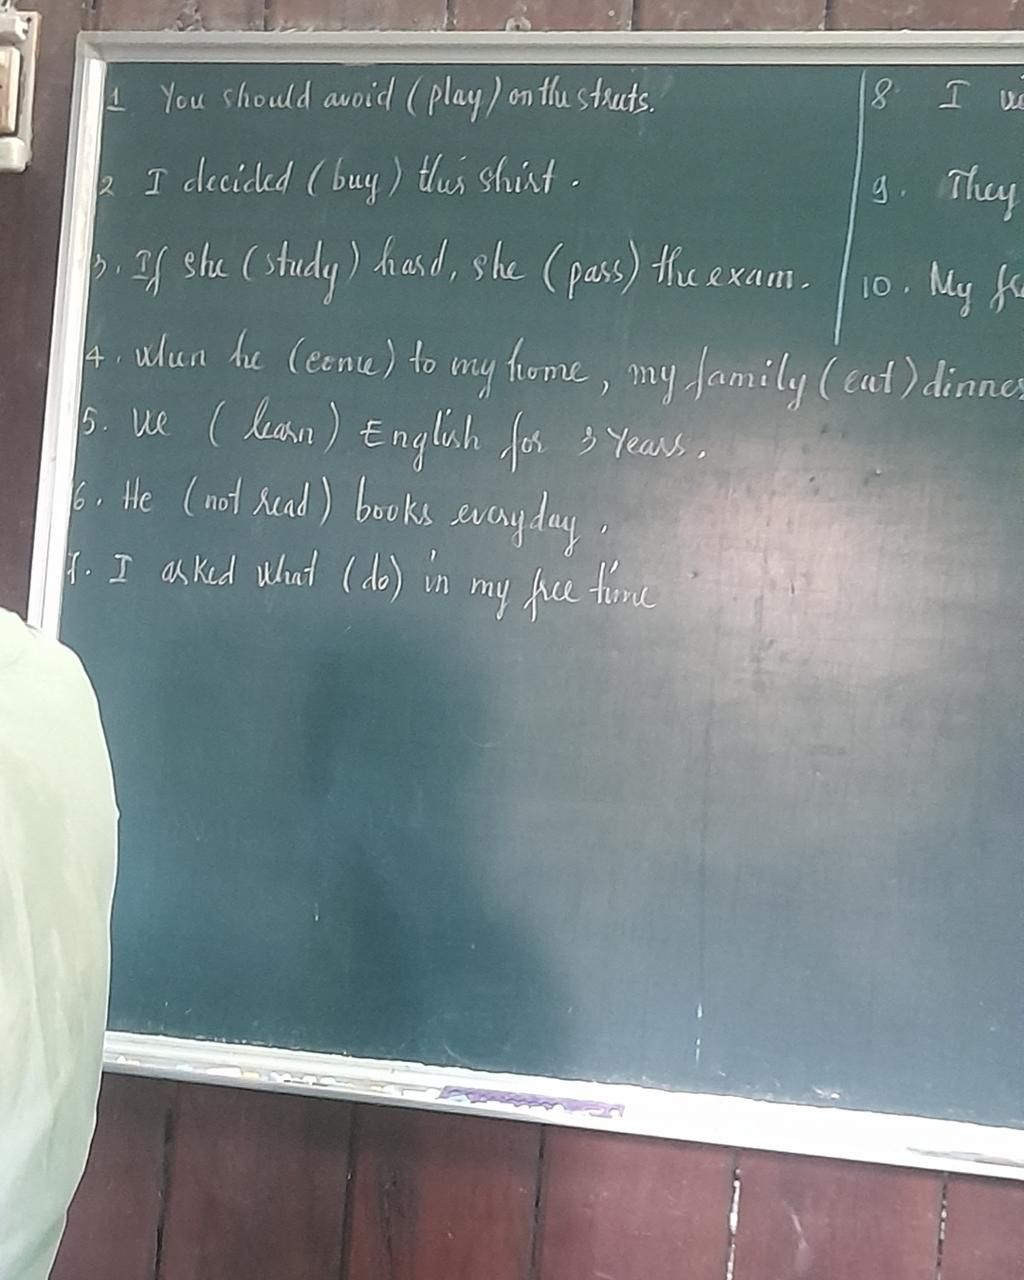 1 You should avoid (play) on the streets.
2 I decided (buy) this shirt.
3. If she (study) hard, she (pass) the exam.
4. When he (come) to my home, my family (eat) dinner
5. We (learn) English for 3 years.
6. He (not read) books everyday.
7. I asked what (do) in my free time
8. I
9. They
10. My